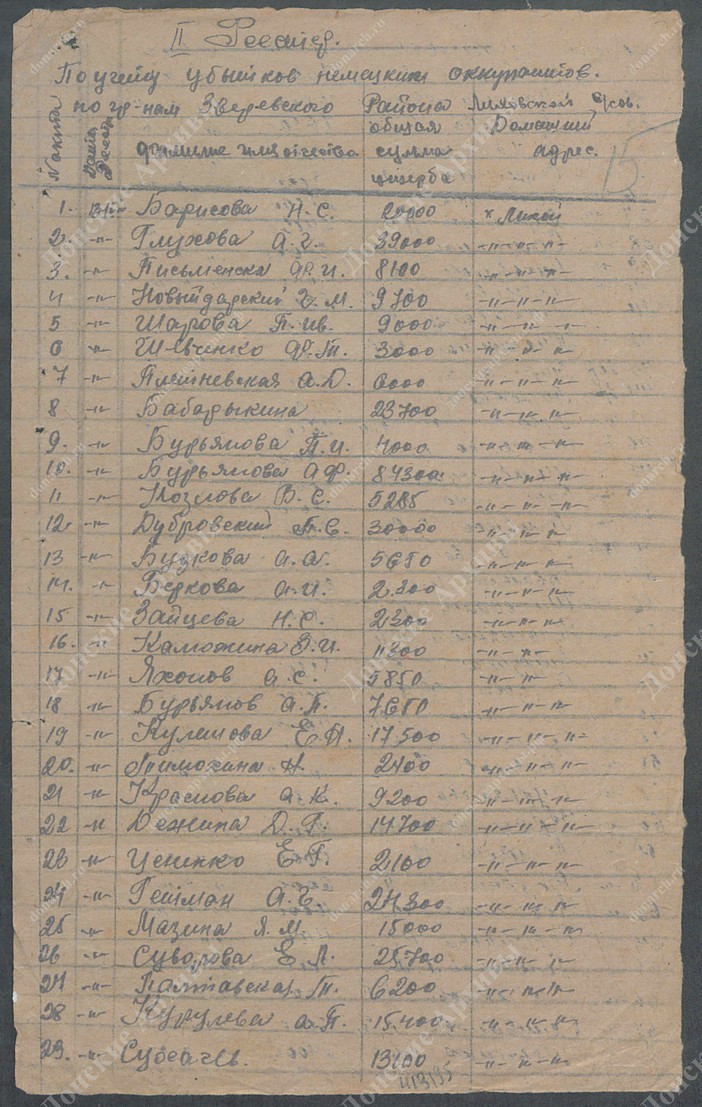 II Реестер.
По учету убытков немецких оккупантов.
по гр-нам Зверевского Района Лиховской с/сов.
№ акта фамилие имя отчество общая сумма ущерба Домашний адрес.
15
1. Барисова Н. С. 20000 х Лихой
2. -"- Глухова А. Г. 39000 -"-"-"-
3. -"- Письменска Ф. И. 8100 -"-"-"-
4 -"- Новыйдарский Г. М. 9700 -"-"-"-
5 -"- Шарова П. Ив. 9000 -"-"-"-
6 -"- Шевченко Ф. Т. 3000 -"-"-"-
7 -"- Плетневская А. D. 6000 -"-"-"-
8 -"- Бабарыкина 23700 -"-"-"-
9. -"- Бурьянова П. И. 4000 -"-"-"-
10. -"- Бурьянова А Ф. 84300 -"-"-"-
11 -"- Козлова В. С. 5285 -"-"-"-
12. -"- Дубровский П. С. 30000 -"-"-"-
13 -"- Будкова А. А. 5650 -"-"-"-
14. -"- Беркова А. И. 2.300 -"-"-"-
15 -"- Зайцева Н. С. 2300 -"-"-"-
16. -"- Каможина З. И. 11300 -"-"-
17 -"- Яхонов А. С. 5850 -"-"-
18 -"- Бурьянов А. П. 7650 -"-"-"-
19 -"- Кулешова Е П. 17500 -"-"-"-"-
20. -"- Тимохина Н. 2400 -"-"-"-
21 -"- Краснова А. К. 9200 -"-"-"-
22 -"- Дежина Д. Г. 14700 -"-"-"-
23 -"- Цененко Е Г. 2100 -"-"-"-
24 -"- Гейман А. Г. 24300 -"-"-"-
25 -"- Мазина Я. М. 15000 -"-"-"-
26 -"- Суворова Е Л. 25700 -"-"-"-
27 -"- Палтавская Т. 6200 -"-"-"-
28 -"- Курулева А. П. 15.400 -"-"-"-
29. -"- 13100 -"-"-"-
413195